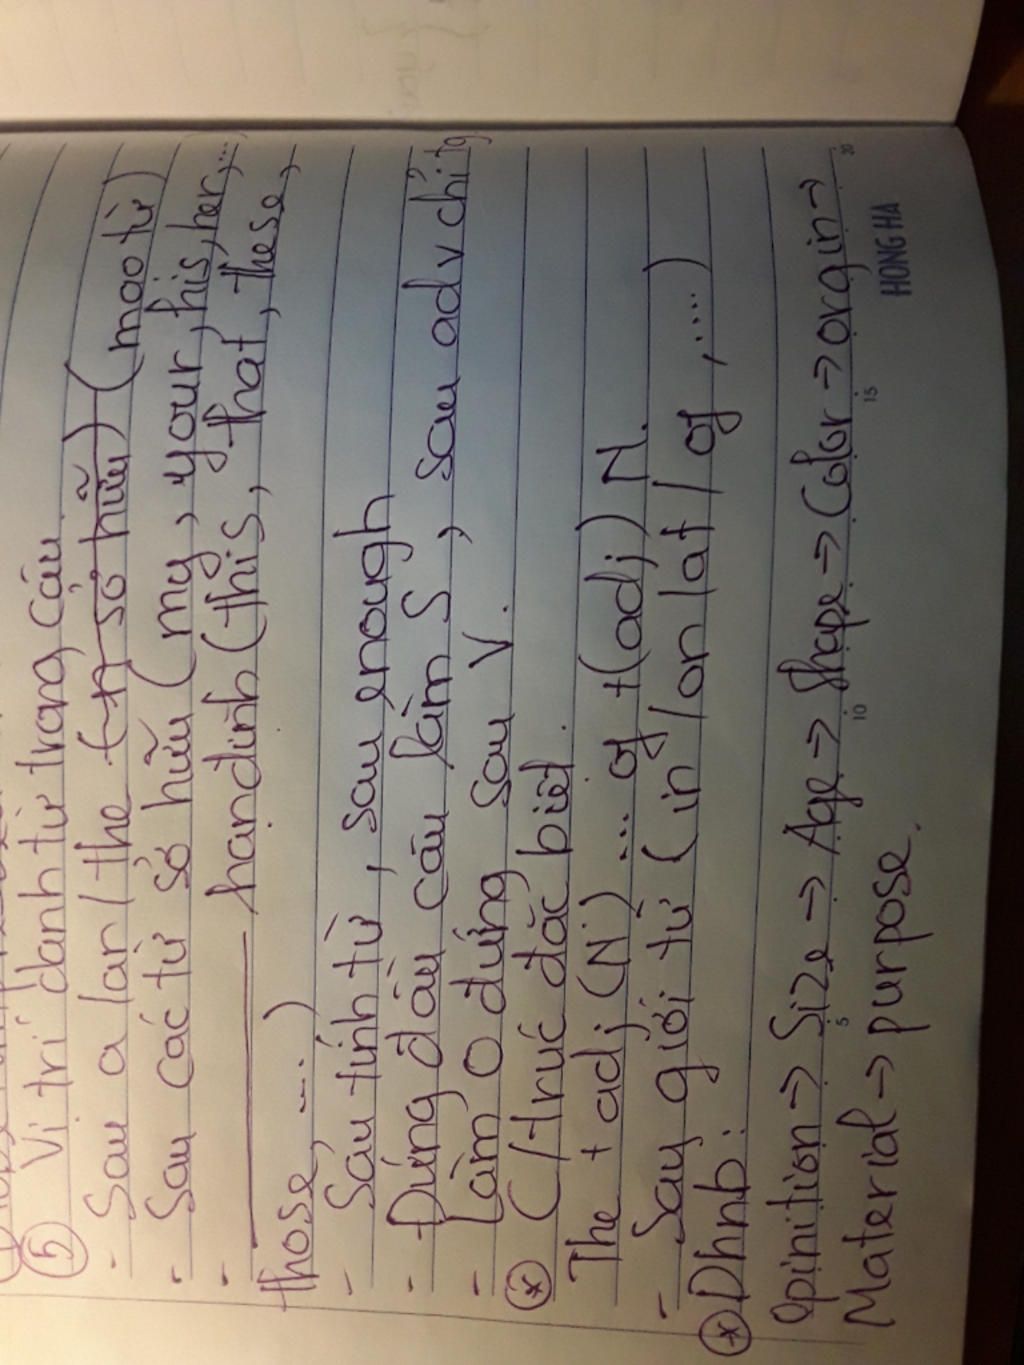 b Vị trí danh từ trong câu.
- Sau a/an/the (+n sở hữu) (mạo từ)
- Sau các từ sở hữu (my, your, his, her,...
- ——— hạn định (this, that, these,
those, ....)
- Sau tính từ, sau enough
- Đứng đầu câu làm S, sau adv chỉ tg
- Làm O đứng sau V.
* C/trúc đặc biệt.
The + adj (N) .... of + (adj) N.
- Say giới từ (in/on/at/of, ....)
* Dhnb:
Opinition → Size → Age → Shape → Color → orgin →
Material → purpose.
5 10 15 20
HONG HA